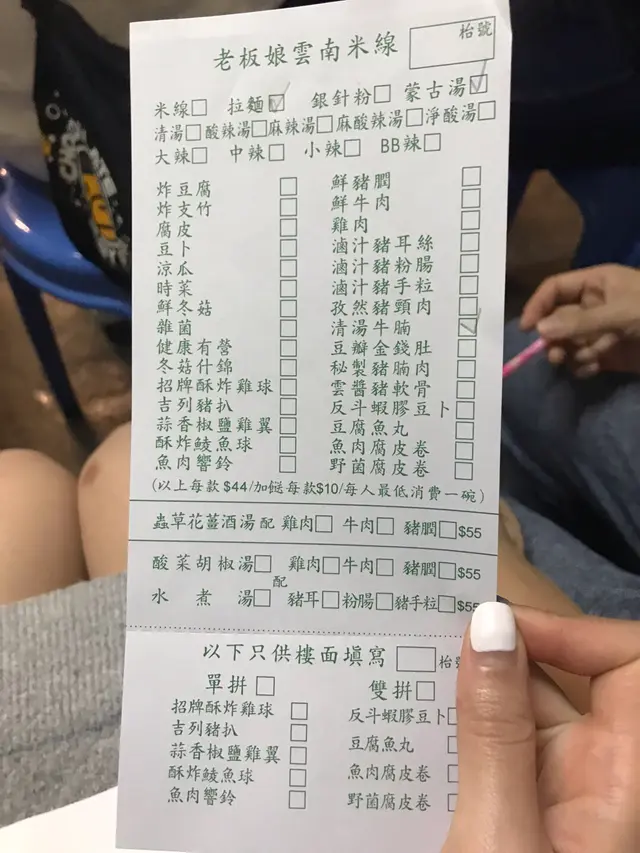 老板娘雲南米線 枱號
米線 拉麵 銀針粉 蒙古湯
清湯 酸辣湯 麻辣湯 麻酸辣湯 淨酸湯
大辣 中辣 小辣 BB辣
炸豆腐 鮮豬膶
炸支竹 鮮牛肉
腐皮 雞肉
豆卜 滷汁豬耳絲
涼瓜 滷汁豬粉腸
時菜 滷汁豬手粒
鮮冬菇 孜然豬頸肉
雜菌 清湯牛腩
健康有營 豆瓣金錢肚
冬菇什錦 秘製豬腩肉
招牌酥炸雞球 雲醬豬軟骨
吉列豬扒 反斗蝦膠豆卜
蒜香椒鹽雞翼 豆腐魚丸
酥炸鯪魚球 魚肉腐皮卷
魚肉響鈴 野菌腐皮卷
(以上每款 $44/加餸每款$10/每人最低消費一碗)
蟲草花薑酒湯 配 雞肉 牛肉 豬膶 $55
酸菜胡椒湯 雞肉 牛肉 豬膶 $55
配
水煮湯 豬耳 粉腸 豬手粒 $55
以下只供樓面填寫 枱號
單拼 雙拼
招牌酥炸雞球 反斗蝦膠豆卜
吉列豬扒 豆腐魚丸
蒜香椒鹽雞翼 魚肉腐皮卷
酥炸鯪魚球 野菌腐皮卷
魚肉響鈴